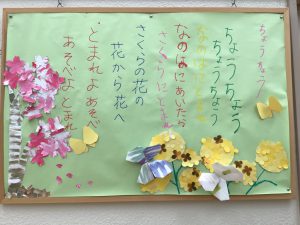 ちょうちょう
ちょうちょう
ちょうちょう
なのはにとまれ
なのはにあいたら
さくらにとまれ
さくらの花の
花から花へ
とまれよ あそべ
あそべよ とまれ